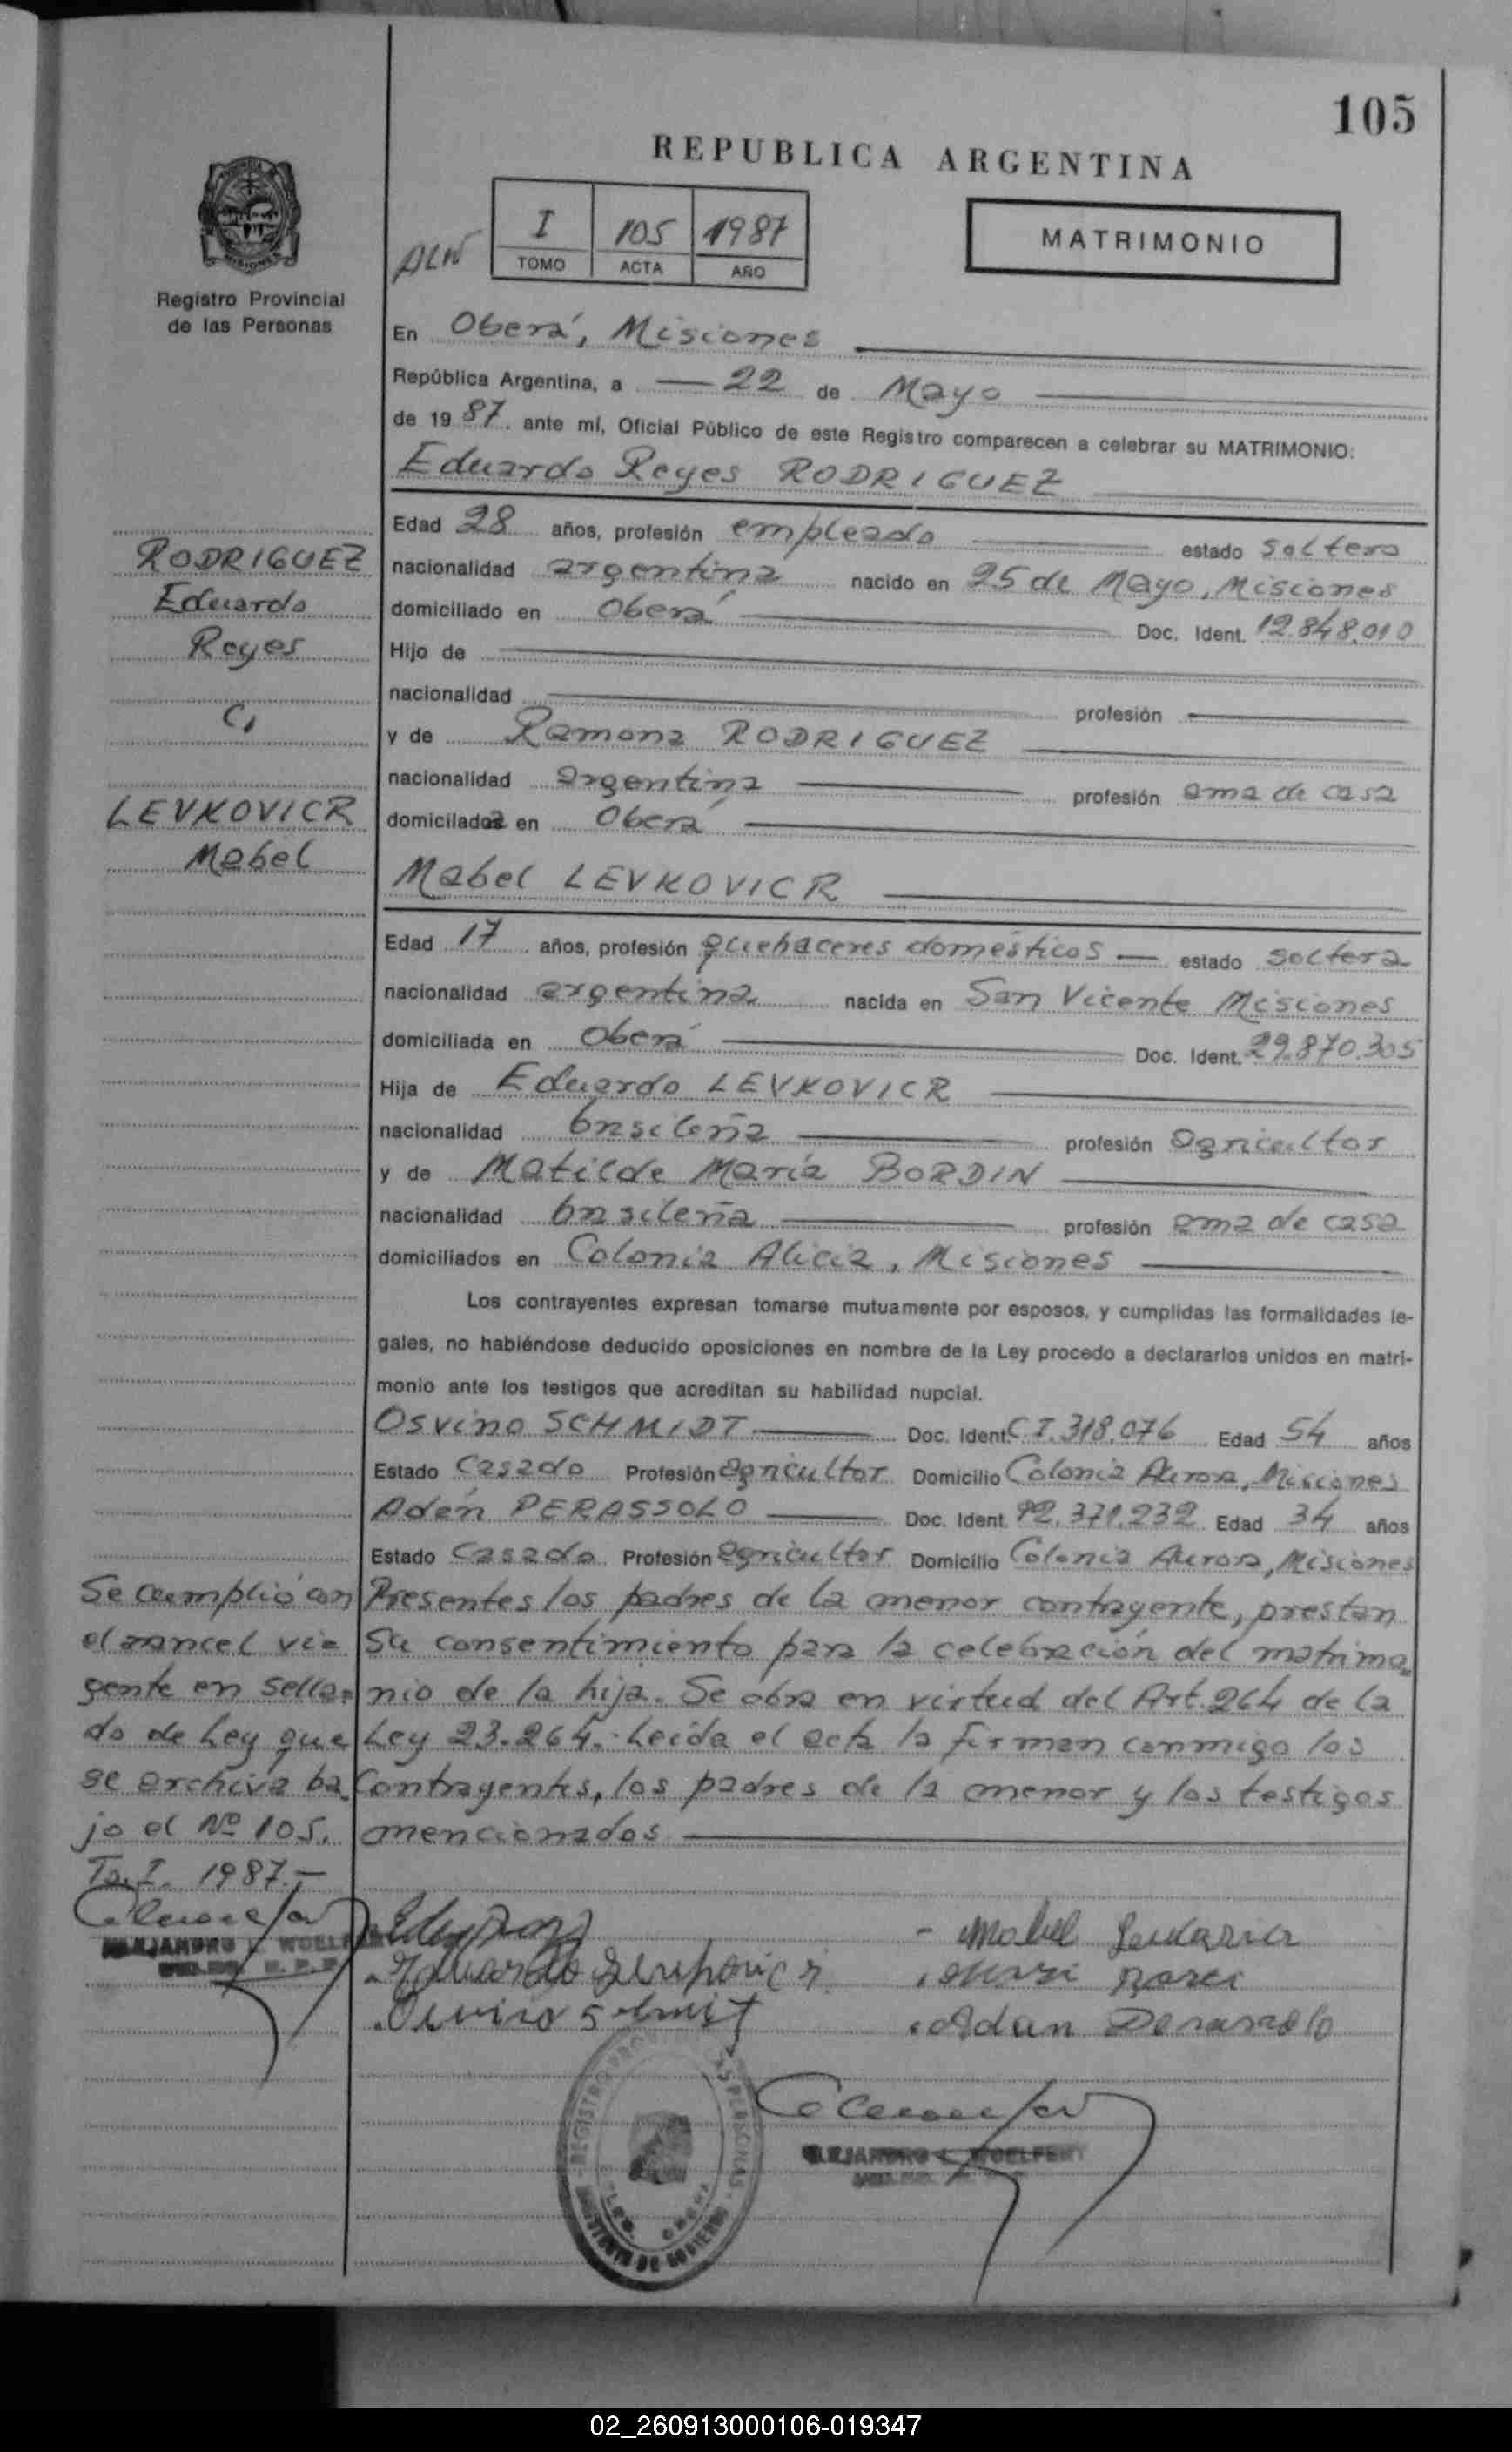 105
REPUBLICA ARGENTINA
I 105 1987
TOMO ACTA AÑO
MATRIMONIO
MISIONES
Registro Provincial
de las Personas
En Oberá, Misiones
República Argentina, a 22 de Mayo
de 1987. ante mí, Oficial Público de este Registro comparecen a celebrar su MATRIMONIO:
Eduardo Reyes RODRIGUEZ
Edad 28 años, profesión empleado estado soltero
nacionalidad argentina nacido en 25 de Mayo, Misiones
domiciliado en Oberá Doc. Ident. 12.848.010
Hijo de
nacionalidad profesión
y de Ramona RODRIGUEZ
nacionalidad argentina profesión ama de casa
domiciladoa en Oberá
RODRIGUEZ
Eduardo
Reyes
C/
LEVKOVICR
Mabel
Mabel LEVKOVICR
Edad 17 años, profesión quehaceres domésticos — estado soltera
nacionalidad argentina nacida en San Vicente Misiones
domiciliada en Oberá Doc. Ident. 29.870.305
Hija de Eduardo LEVKOVICR
nacionalidad brasileña profesión agricultor
y de Matilde María BORDIN
nacionalidad brasileña profesión ama de casa
domiciliados en Colonia Alicia, Misiones
Los contrayentes expresan tomarse mutuamente por esposos, y cumplidas las formalidades le-
gales, no habiéndose deducido oposiciones en nombre de la Ley procedo a declararlos unidos en matri-
monio ante los testigos que acreditan su habilidad nupcial.
Osvino SCHMIDT Doc. Ident. C.I. 318.076 Edad 54 años
Estado Casado Profesión agricultor Domicilio Colonia Aurora, Misiones
Adén PERASSOLO Doc. Ident. 92.371.232 Edad 34 años
Estado Casado Profesión agricultor Domicilio Colonia Aurora, Misiones
Presentes los padres de la menor contrayente, prestan
su consentimiento para la celebración del matrimo
nio de la hija. Se obra en virtud del Art. 264 de la
Ley 23.264.- Leída el acta la firman conmigo los
Contrayentes, los padres de la menor y los testigos
mencionados
Se cumplió con
el arancel vi=
gente en sella=
do de Ley que
se archiva ba_
jo el Nº 105.
To. I. 1987.-
ALEJANDRO L. WOELFERT
Eduardo Levkovicr
Mabel
Adan
REGISTRO
ALEJANDRO L. WOELFERT
02_260913000106-019347